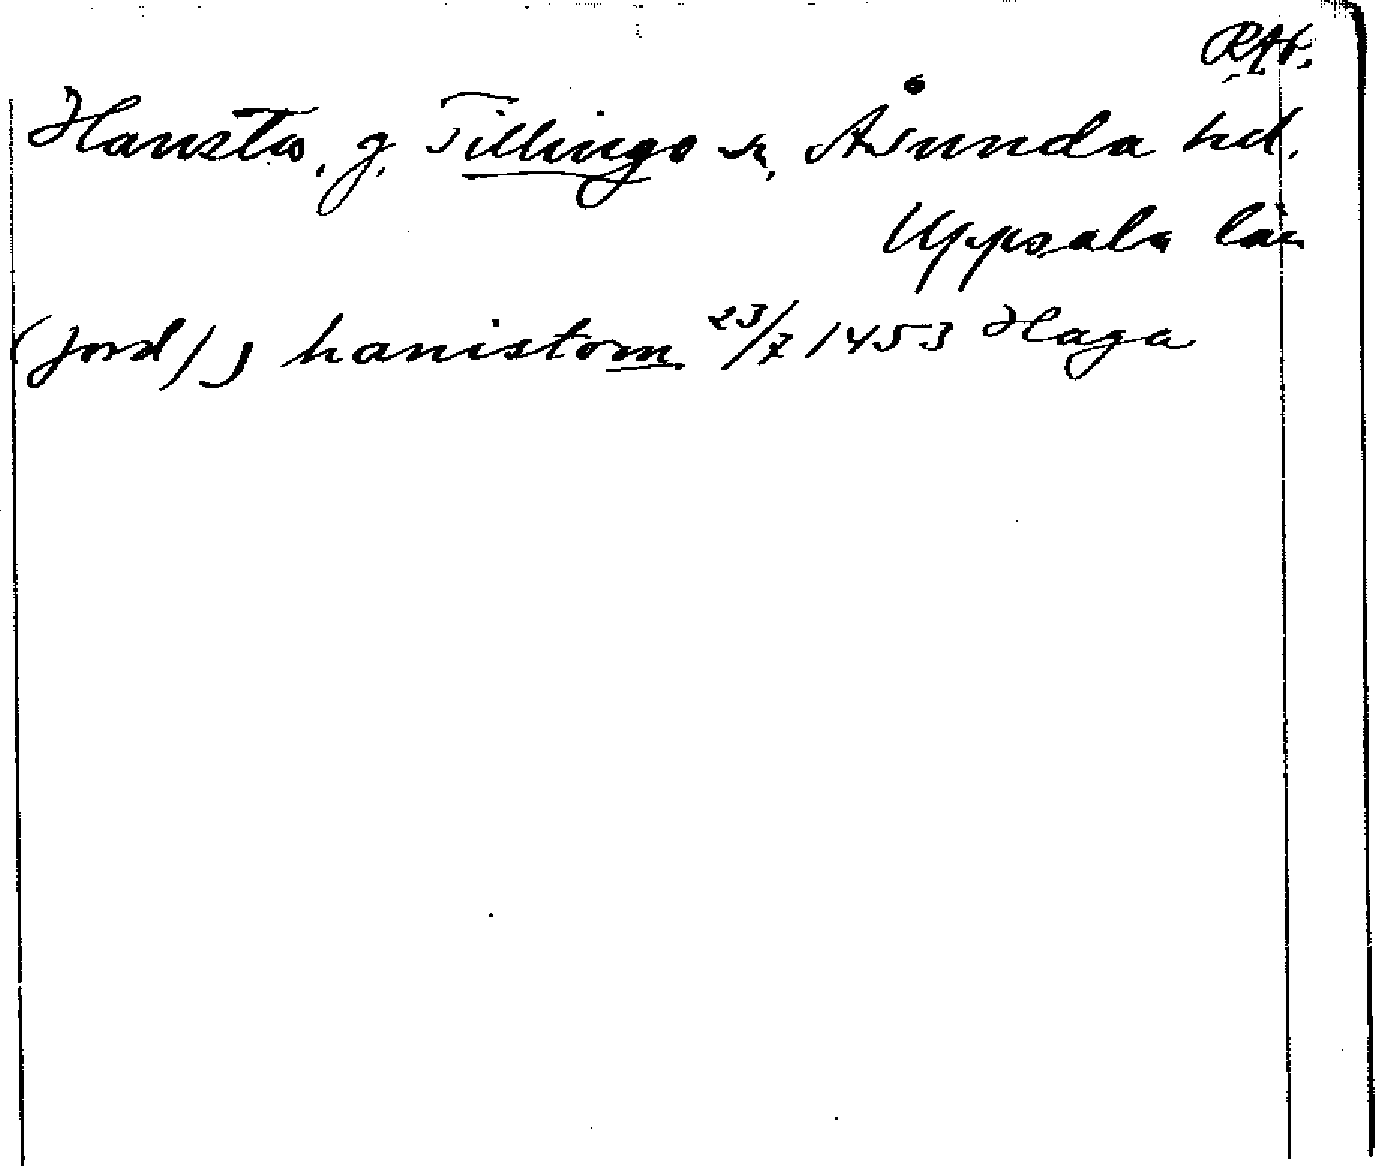 RAP.
Hansta, g. Tillinge sn, Åsunda hd.
Uppsala län
(jord) j hanistom 23/7 1453 Haga